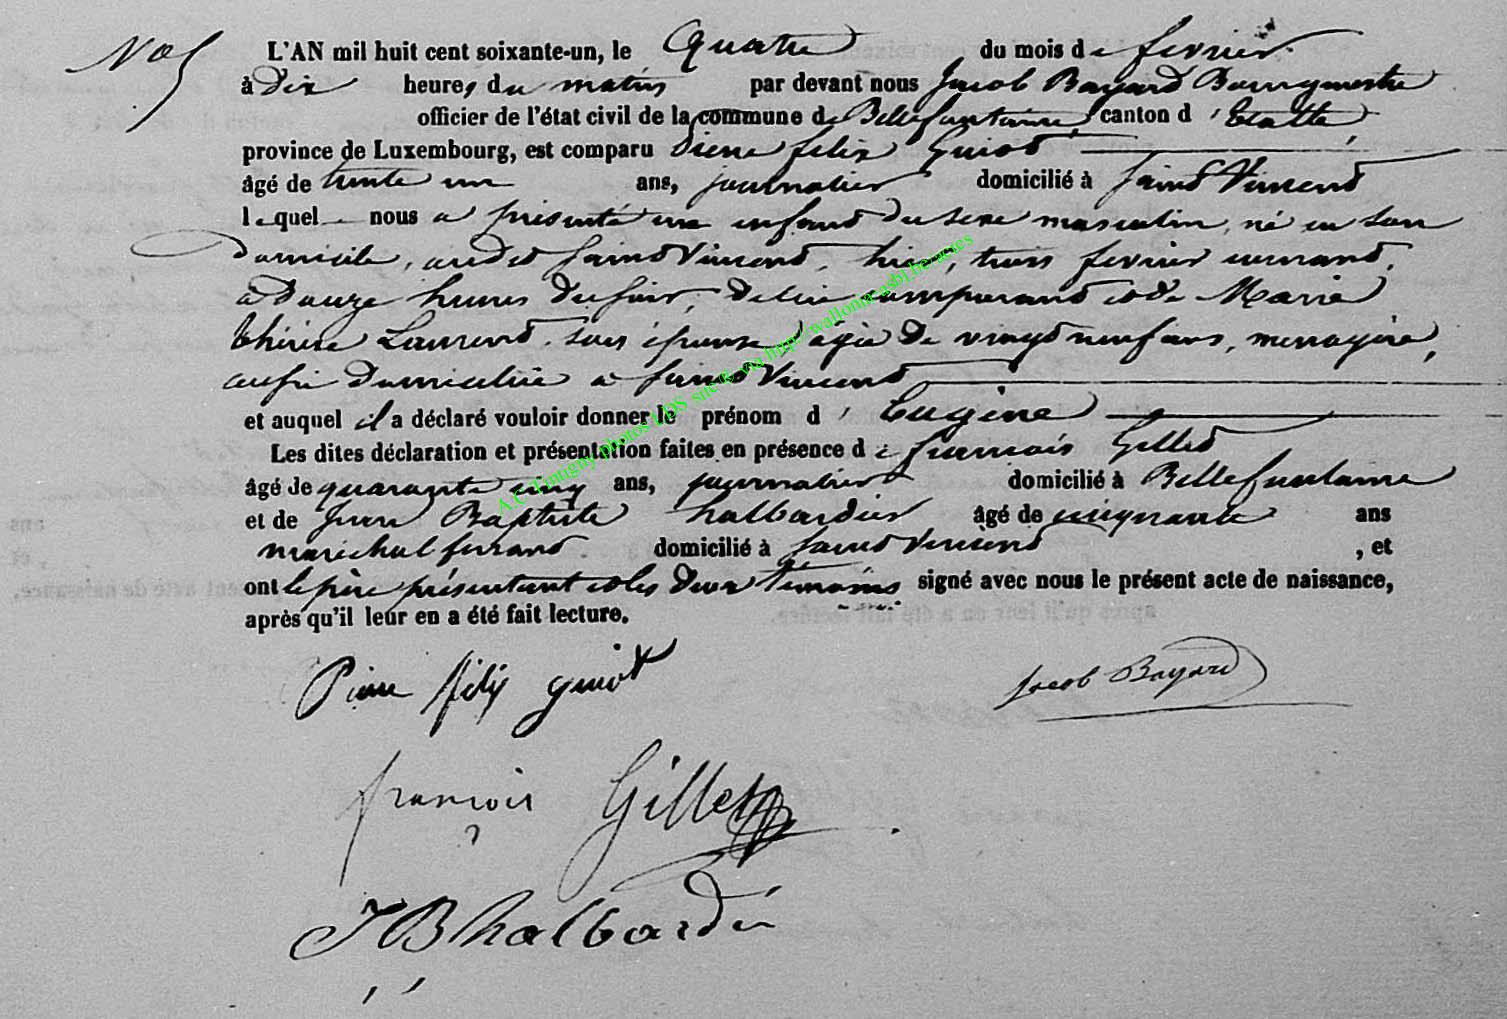 No 5
L'AN mil huit cent soixante-un, le Quatre du mois de fevrier
à Dix heures du matin par devant nous Jacob Bayard Bourgmestre
officier de l'état civil de la commune de Bellefontaine, canton d'Etalle,
province de Luxembourg, est comparu Pierre felix Guiot
âgé de trente un ans, journalier domicilié à Saint Vincent
lequel nous a présenté un enfant du sexe masculin, né en son
Domicile, audit Saint Vincent, hier, trois fevrier courant,
à Douze heures du soir, de lui comparant et de Marie
thérèse Laurent, son épouse, agée de vingt neuf ans, menagère,
aussi domiciliée a Saint Vincent
et auquel il a déclaré vouloir donner le prénom d'Eugène
Les dites déclaration et présentation faites en présence de françois Gillet
âgé de quarante cinq ans, journalier domicilié à Bellefontaine
et de Jean Baptiste halbardier âgé de cinquante ans
maréchal ferrant domicilié à Saint Vincent , et
ont le père présentant et les deux témoins signé avec nous le présent acte de naissance,
après qu'il leur en a été fait lecture.
Pierre félix guiot
Jacob Bayard
françois Gillet
J B halbardié
A.C Tintigny photos LDS site & via http://wallonia.asbl.beractes